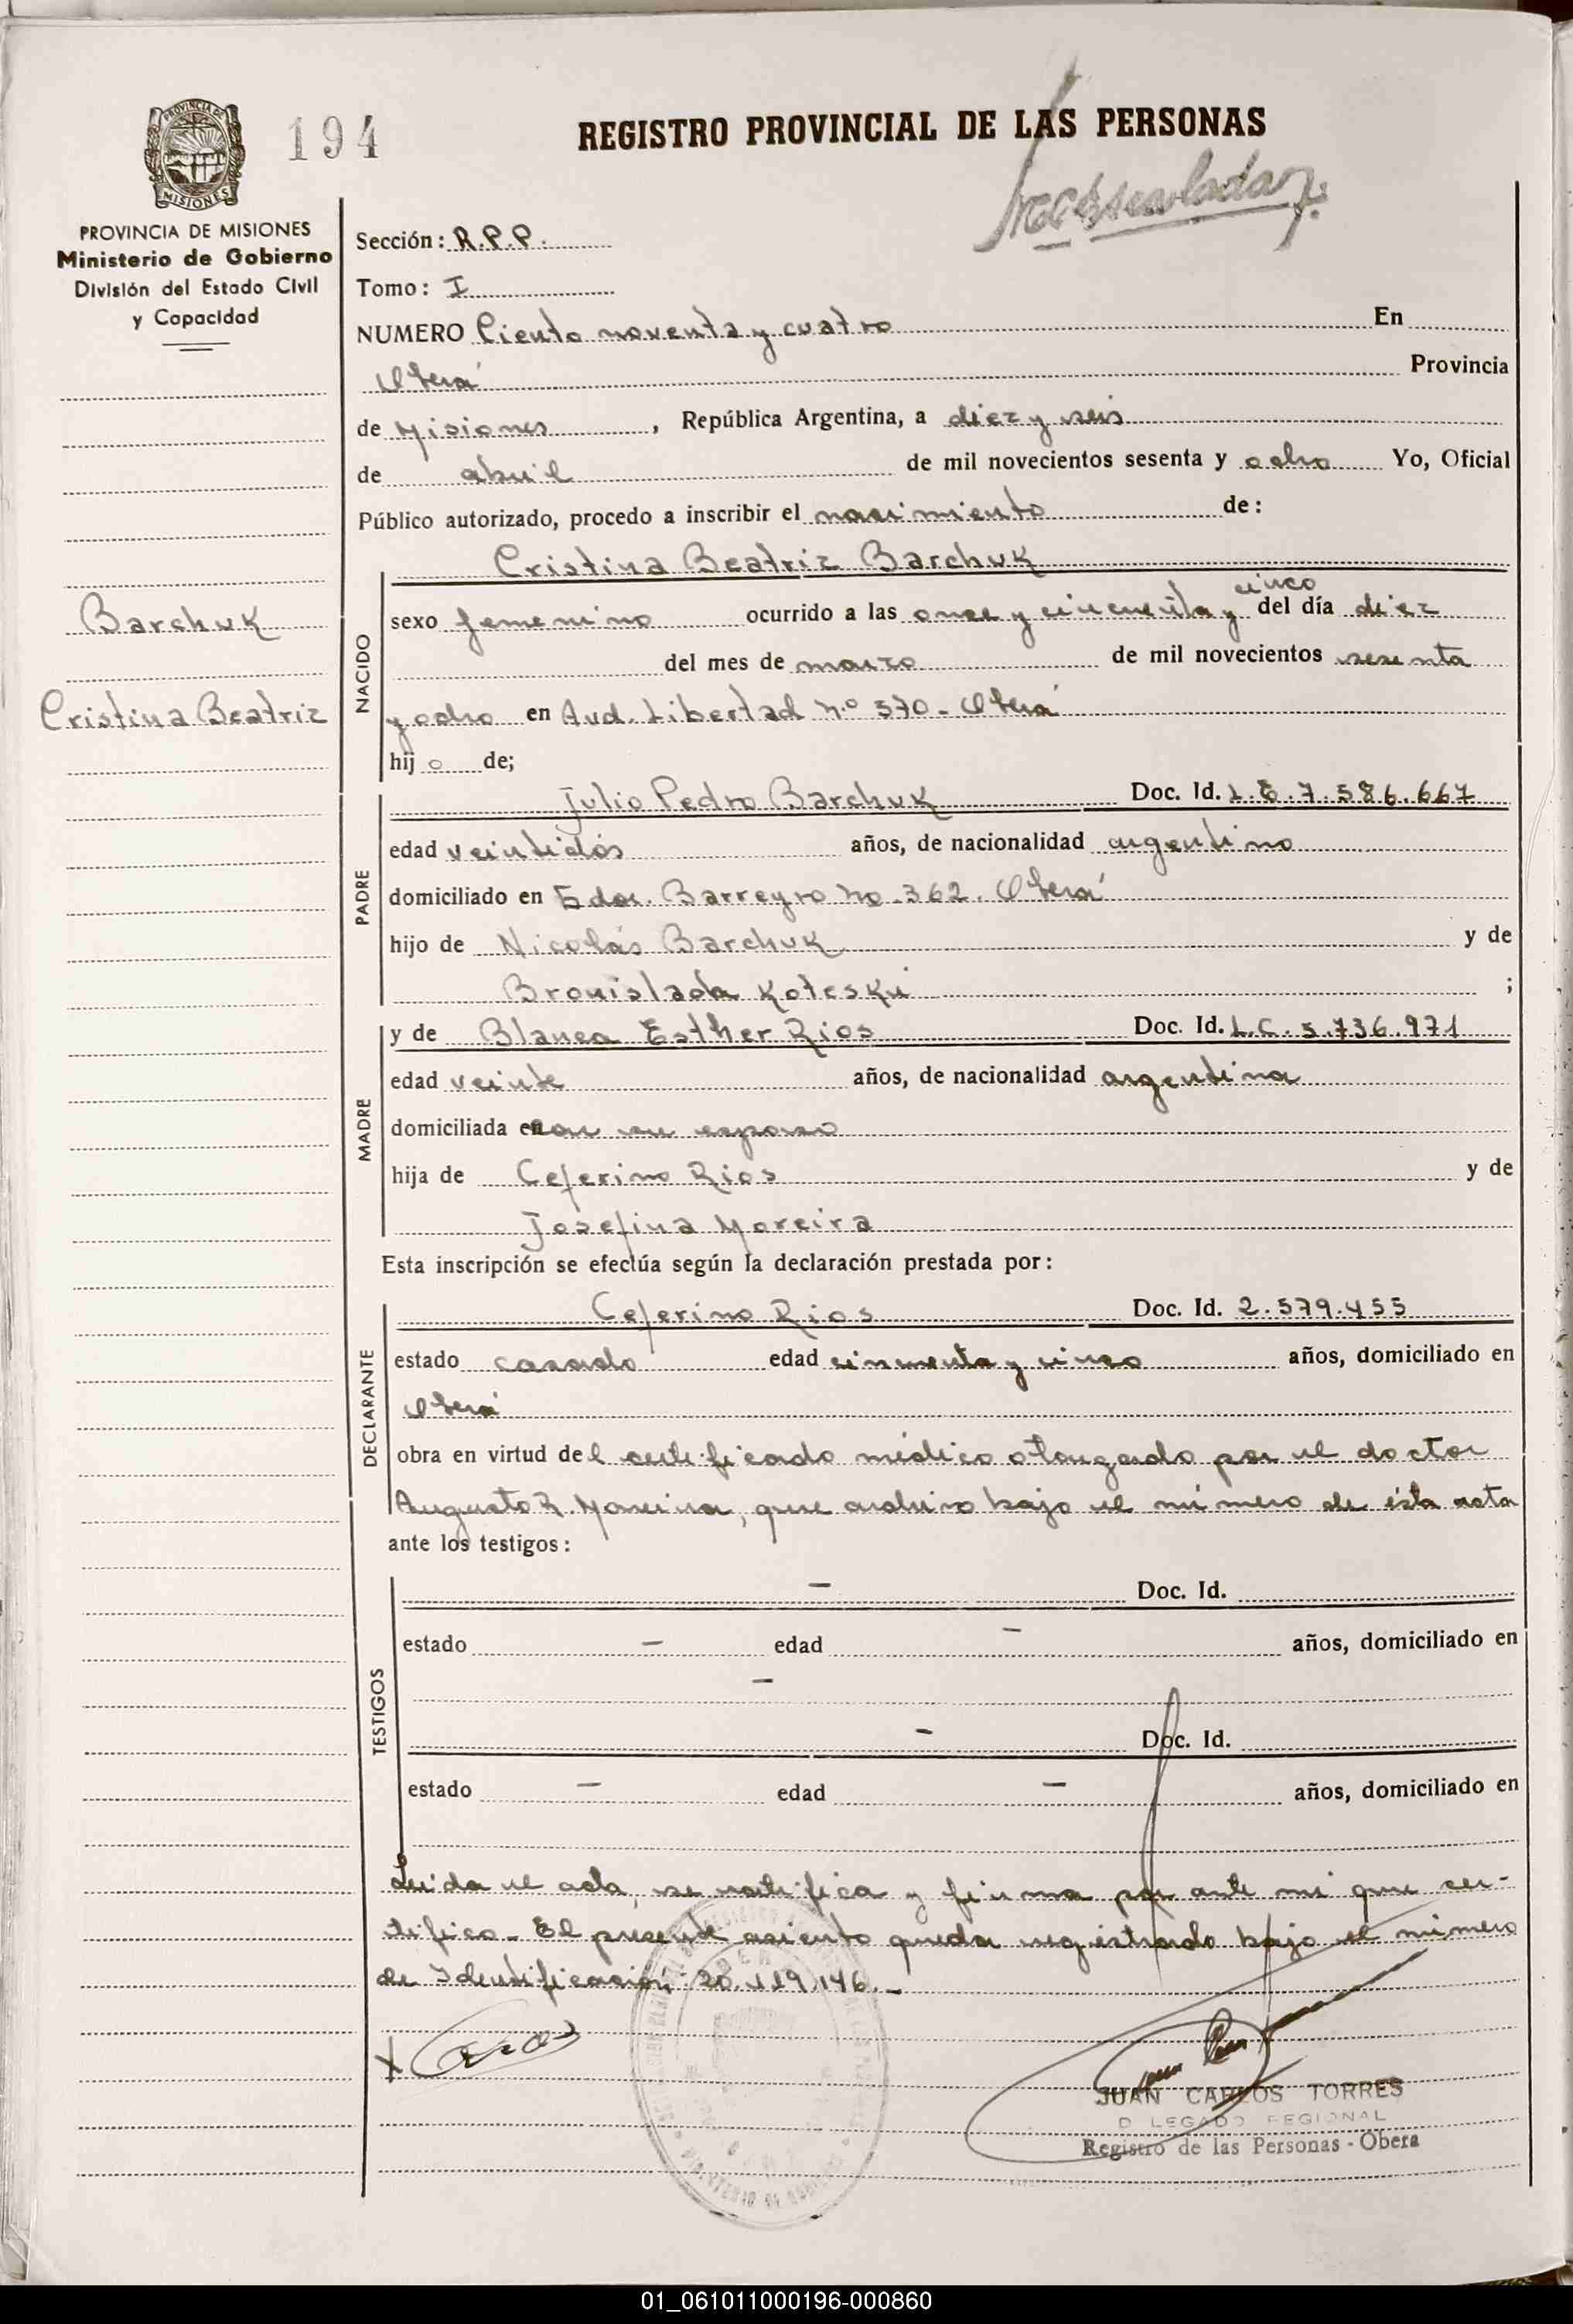 PROVINCIA DE
MISIONES
194
REGISTRO PROVINCIAL DE LAS PERSONAS
PROVINCIA DE MISIONES
Ministerio de Gobierno
División del Estado Civil
y Capacidad
Sección: R.P.P.
Tomo: I
NUMERO Ciento noventa y cuatro En
Oberá Provincia
de Misiones, República Argentina, a diez y seis
de abril de mil novecientos sesenta y ocho Yo, Oficial
Público autorizado, procedo a inscribir el nacimiento de:
Barchuk
Cristina Beatriz
NACIDO
Cristina Beatriz Barchuk
cinco
sexo femenino ocurrido a las once y cincuenta y del día diez
del mes de marzo de mil novecientos sesenta
y ocho en Avd. Libertad Nº 570 - Oberá
hij o de;
PADRE
Julio Pedro Barchuk Doc. Id. L.E. 7.586.667
edad veintidós años, de nacionalidad argentino
domiciliado en Edor. Barreyro No. 362. Oberá
hijo de Nicolás Barchuk y de
Bronislada Koteski ;
MADRE
y de Blanca Esther Rios Doc. Id. L.C. 5.736.971
edad veinte años, de nacionalidad argentina
domiciliada en con su esposo
hija de Ceferino Rios y de
Josefina Moreira
Esta inscripción se efectúa según la declaración prestada por:
DECLARANTE
Ceferino Rios Doc. Id. 2.579.455
estado casado edad cincuenta y cinco años, domiciliado en
Oberá
obra en virtud del certificado médico otorgado por el doctor
Augusto R. Moreira, que archivo bajo el número de ésta acta
ante los testigos:
TESTIGOS
- Doc. Id.
estado - edad - años, domiciliado en
-
- Doc. Id.
estado - edad - años, domiciliado en
Leida el acta, se ratifica y firma por ante mi que cer-
tifico - El presente asiento queda registrado bajo el número
de Identificación: 20.119.146.-
JUAN CARLOS TORRES
D LEGADO REGIONAL
Registro de las Personas - Obera
01_061011000196-000860